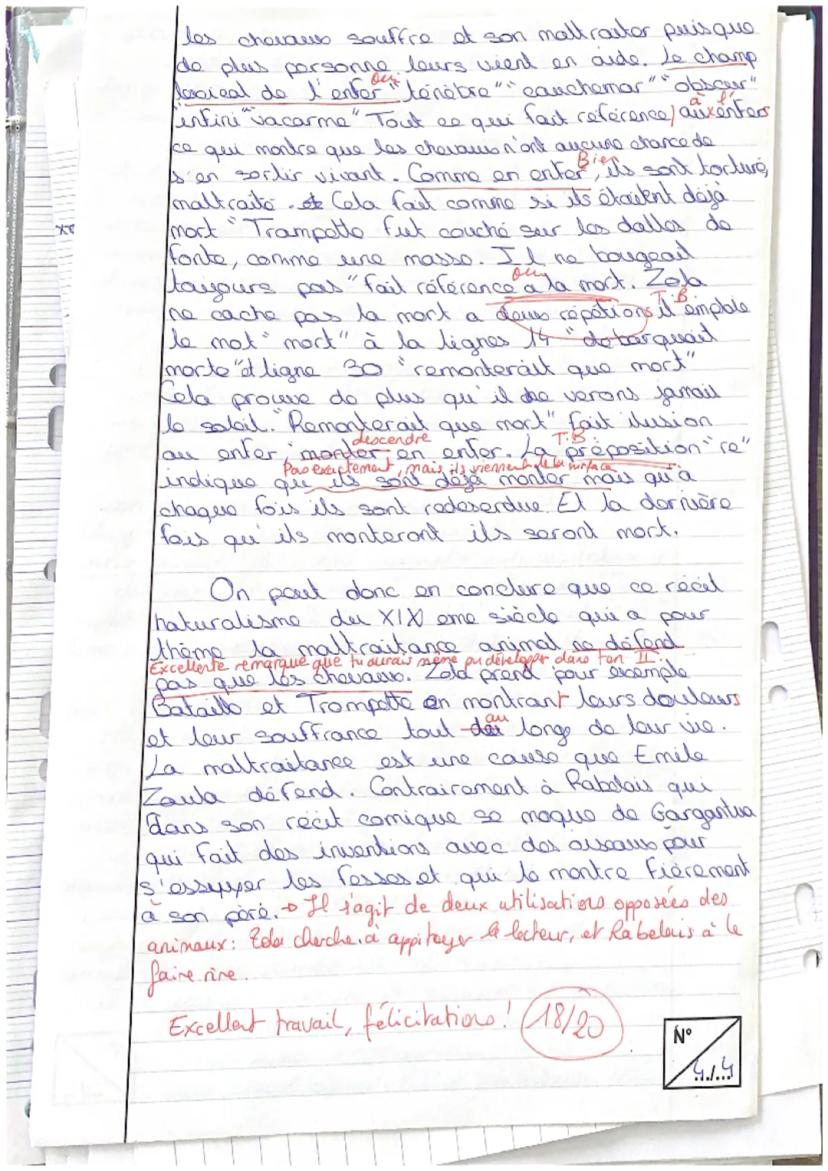 les chevaux souffre et son maltraiter puisque
de plus personne leurs vient en aide. Le champ
lexical de l'enfer "ténèbre" "cauchemar" "obscur"
oui
"infini" "vacarme" Tout ce qui fait référence aux enfers
à l'
ce qui montre que les chevaux n'ont aucune chance de
s'en sortir vivant. Comme en enfer, ils sont torturé,
Bien
maltraité. Cela fait comme si ils étaient déjà
mort "Trompette fut couché sur les dalles de
fonte, comme une masse. Il ne bougeait
toujours pas" fait référence à la mort. Zola
oui
ne cache pas la mort a deux répétions il emploie
T.B
le mot "mort" à la lignes 14 "débarquait
morte" et ligne 30 "remonterait que mort"
Cela prouve de plus qu'il ne verons jamais
le soleil. "Remonterait que mort" fait ilusion
au enfer, monter en enfer. La préposition "re"
descendre
T.B
Pas exactement, mais ils viennent de la surface
indique qu'ils sont déjà monter mais qu'a
chaque fois ils sont redescendue. Et la dernière
fois qu'ils monteront ils seront mort.
On peut donc en conclure que ce récit
naturalisme du XIX eme siècle qui a pour
thème la maltraitance animal ne défend
Excellente remarque que tu aurais même pu développer dans ton II.
pas que les chevaux. Zola prend pour exemple
Bataille et Trompette en montrant leurs douleurs
et leur souffrance tout au long de leur vie.
La maltraitance est une cause que Emile
Zoula défend. Contrairement à Rabelais qui
dans son récit comique se moque de Gargantua
qui fait des inventions avec des oiseaux pour
s'essuyer les fesses et qui le montre fièrement
à son père. → Il s'agit de deux utilisations opposées des
animaux: Zola cherche à appitoyer le lecteur, et Rabelais à le
faire rire.
Excellent travail, félicitations! 18/20
N°
4/4